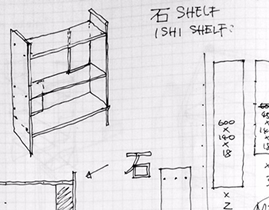 石 SHELF
ISHI SHELF:
石
600
×
140
×
18
×
2